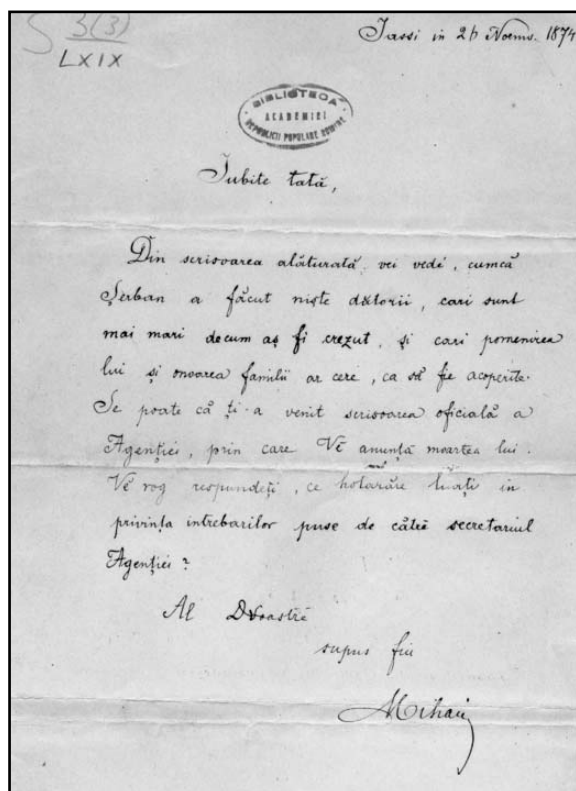 S 3(3)
LXIX
Jassi in 26 Noems. 1874
BIBLIOTECA
ACADEMIEI
REPUBLICII POPULARE ROMÎNE
Iubite tată,
Din scrisoarea alăturată, vei vedé, cumcă
Șerban a făcut niște dătorii, cari sunt
mai mari decum aș fi crezut, și cari pomenirea
lui și onoarea familii ar cere, ca să fie acoperite.
Se poate că ți-a venit scrisoarea oficială a
Agenției, prin care Vĕ anunță moartea lui.
Vĕ rog respundeți, ce hotărâre luați in
privința intrebarilor puse de cătrĕ secretariul
Agenției?
Al DVoastrĕ
supus fiu
Mihai